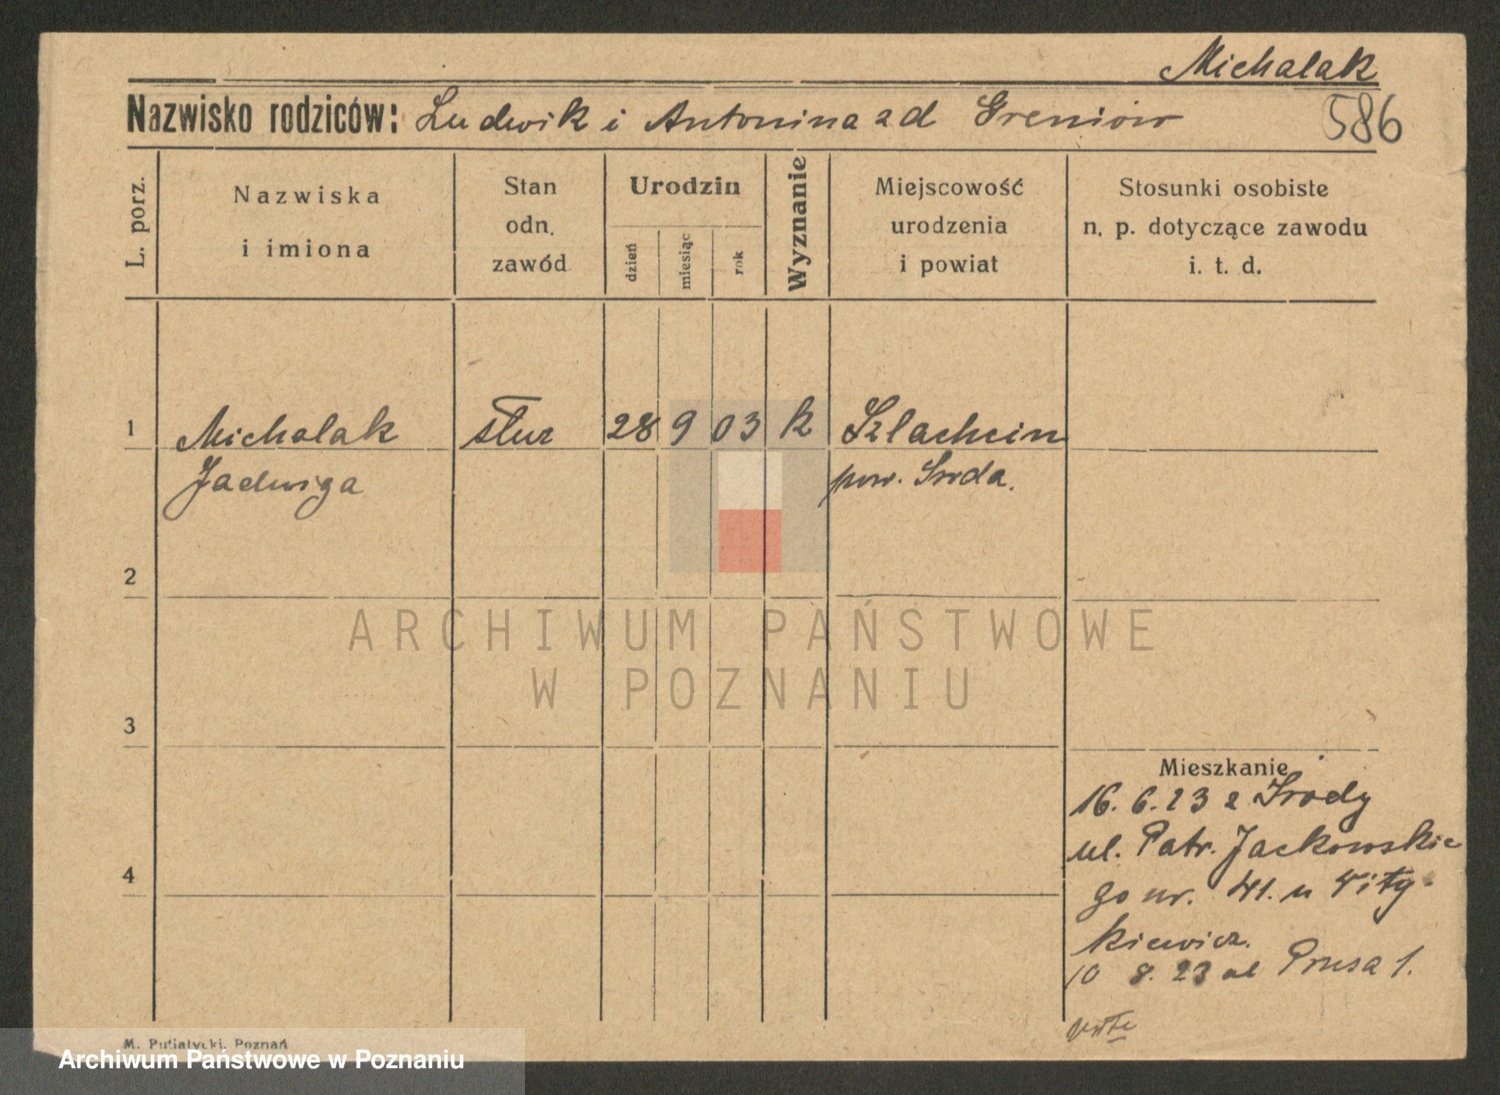 Michalak
Nazwisko rodziców: Ludwik i Antonina zd Greniów
586
L. porz.
Nazwiska
i imiona
Stan
odn.
zawód
Urodzin
dzień
miesiąc
rok
Wyznanie
Miejscowość
urodzenia
i powiat
Stosunki osobiste
n. p. dotyczące zawodu
i. t. d.
1 Michalak służ 28 9 03 k Szlachcin
Jadwiga pow. Środa.
2
ARCHIWUM PAŃSTWOWE
W POZNANIU
3
Mieszkanie
16.6.23 z Środy
ul. Patr. Jackowskie
4
go nr. 41. u Wity
kiewicz.
10 8.23 ul Prusa 1.
M. Putiatycki, Poznań
Archiwum Państwowe w Poznaniu